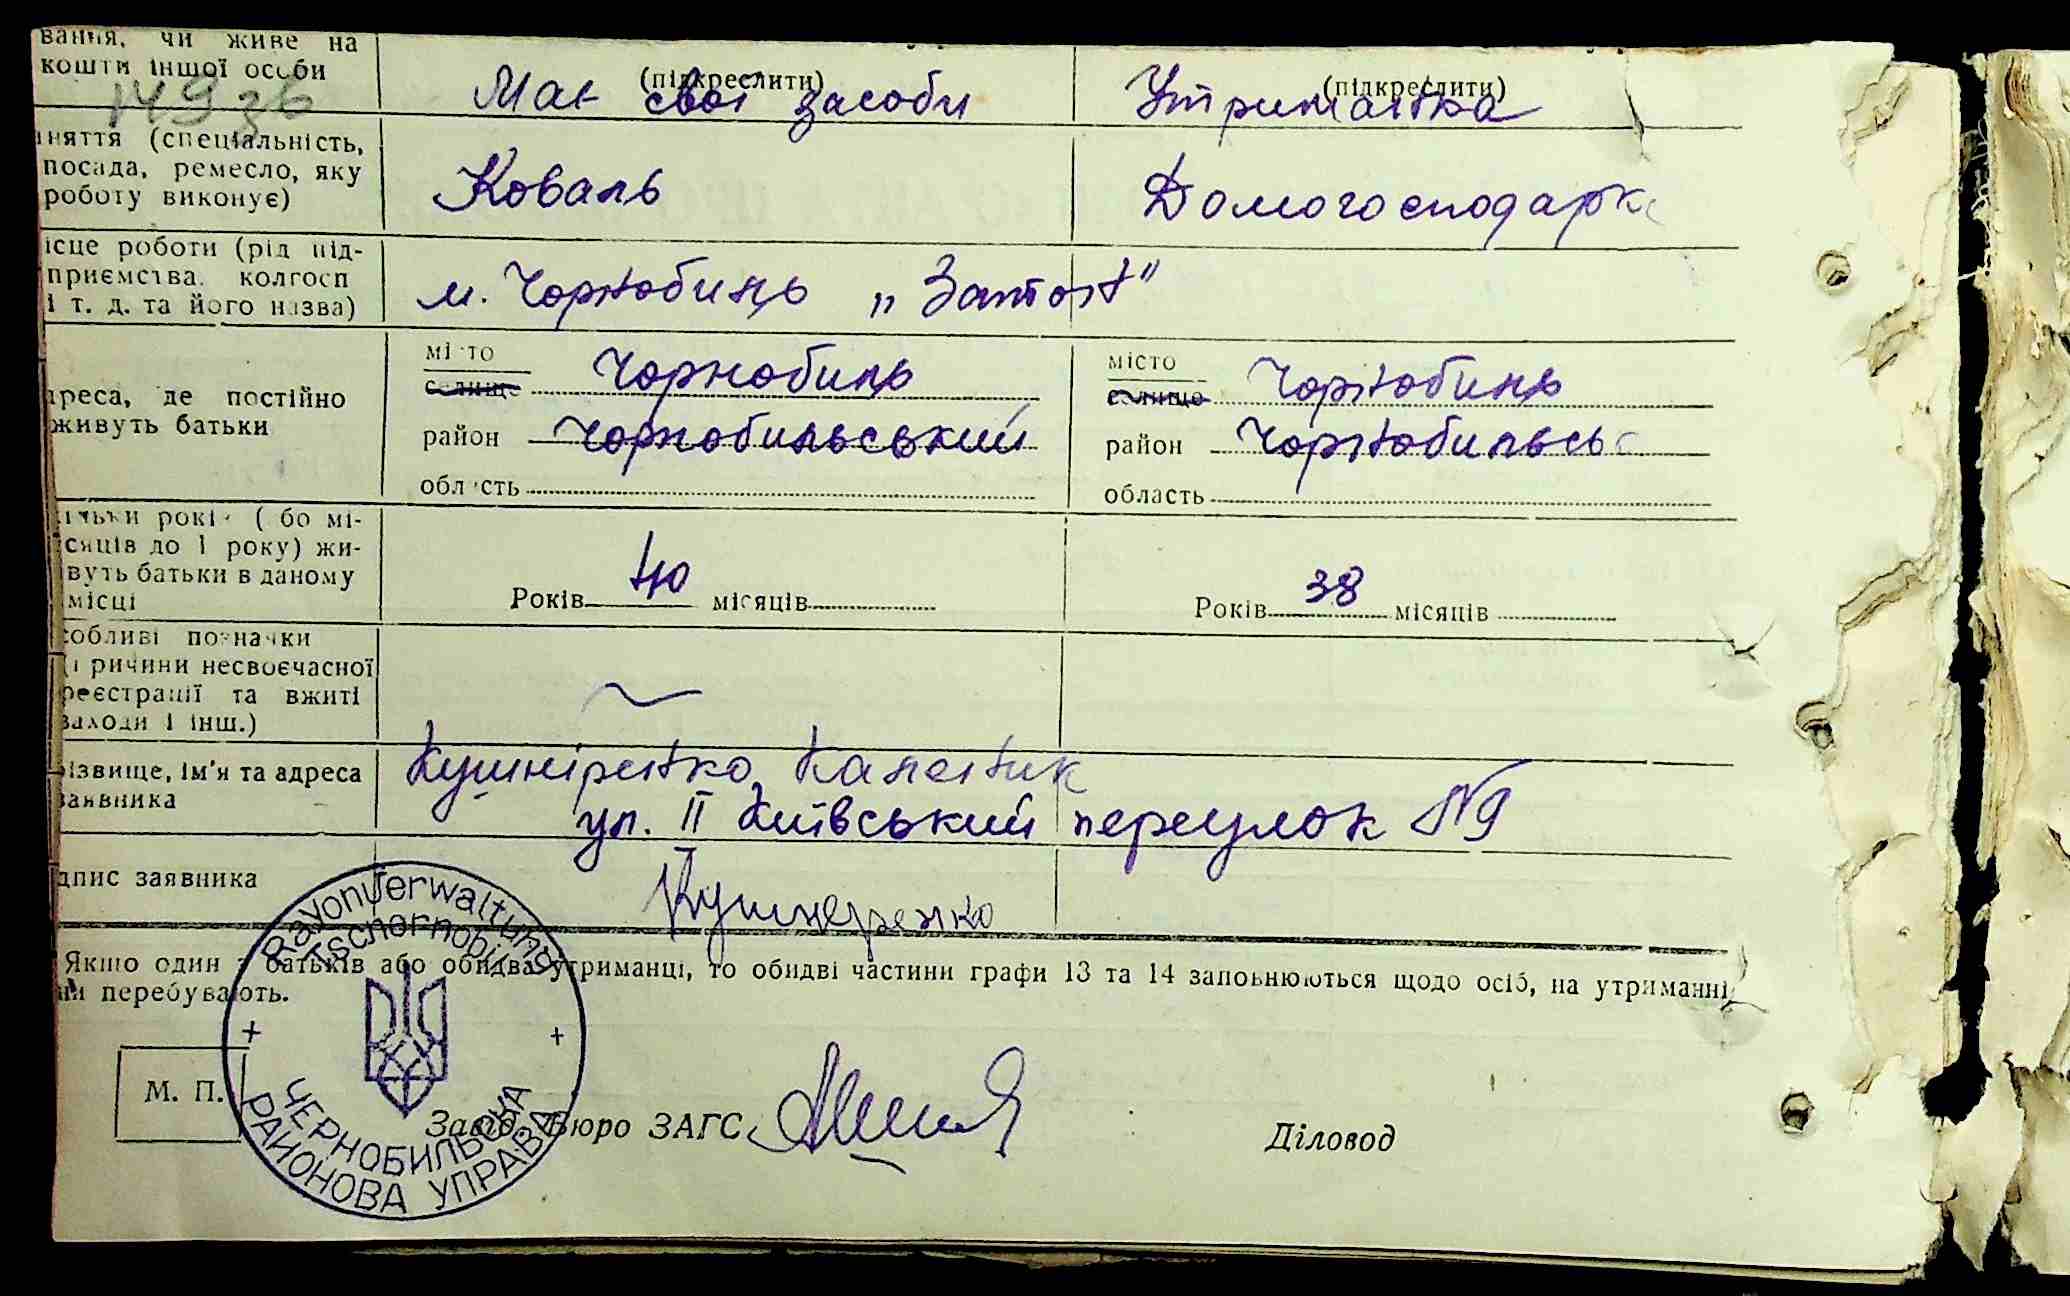 вання, чи живе на
кошти іншої особи
149 зв
(підкреслити)
(підкреслити)
Має свої засоби
Утриманка
няття (спеціальність,
посада, ремесло, яку
роботу виконує)
Коваль
Домогосподарка
ісце роботи (рід під-
приємства, колгосп
і т. д. та його назва)
м. Чорнобиль „Затон"
адреса, де постійно
живуть батьки
місто Чорнобиль
селище
район Чорнобильський
область
місто Чорнобиль
селище
район Чорнобильськ
область
ільки років (або мі-
сяців до 1 року) жи-
вуть батьки в даному
місці
Років 40 місяців
Років 38 місяців
собливі позначки
(причини несвоєчасної
реєстрації та вжиті
заходи і інш.)
ізвище, ім'я та адреса
заявника
Кушніренко Каленик
ул. ІІ Київський переулок №9
дпис заявника
Кушнеренко
Якщо один з батьків або обидва утриманці, то обидві частини графи 13 та 14 заповнюються щодо осіб, на утриманні
ни перебувають.
Rayonverwaltung
Tschornobil
ЧЕРНОБИЛЬСЬКА
РАЙОНОВА УПРАВА
М. П.
Завід. Бюро ЗАГС
Діловод